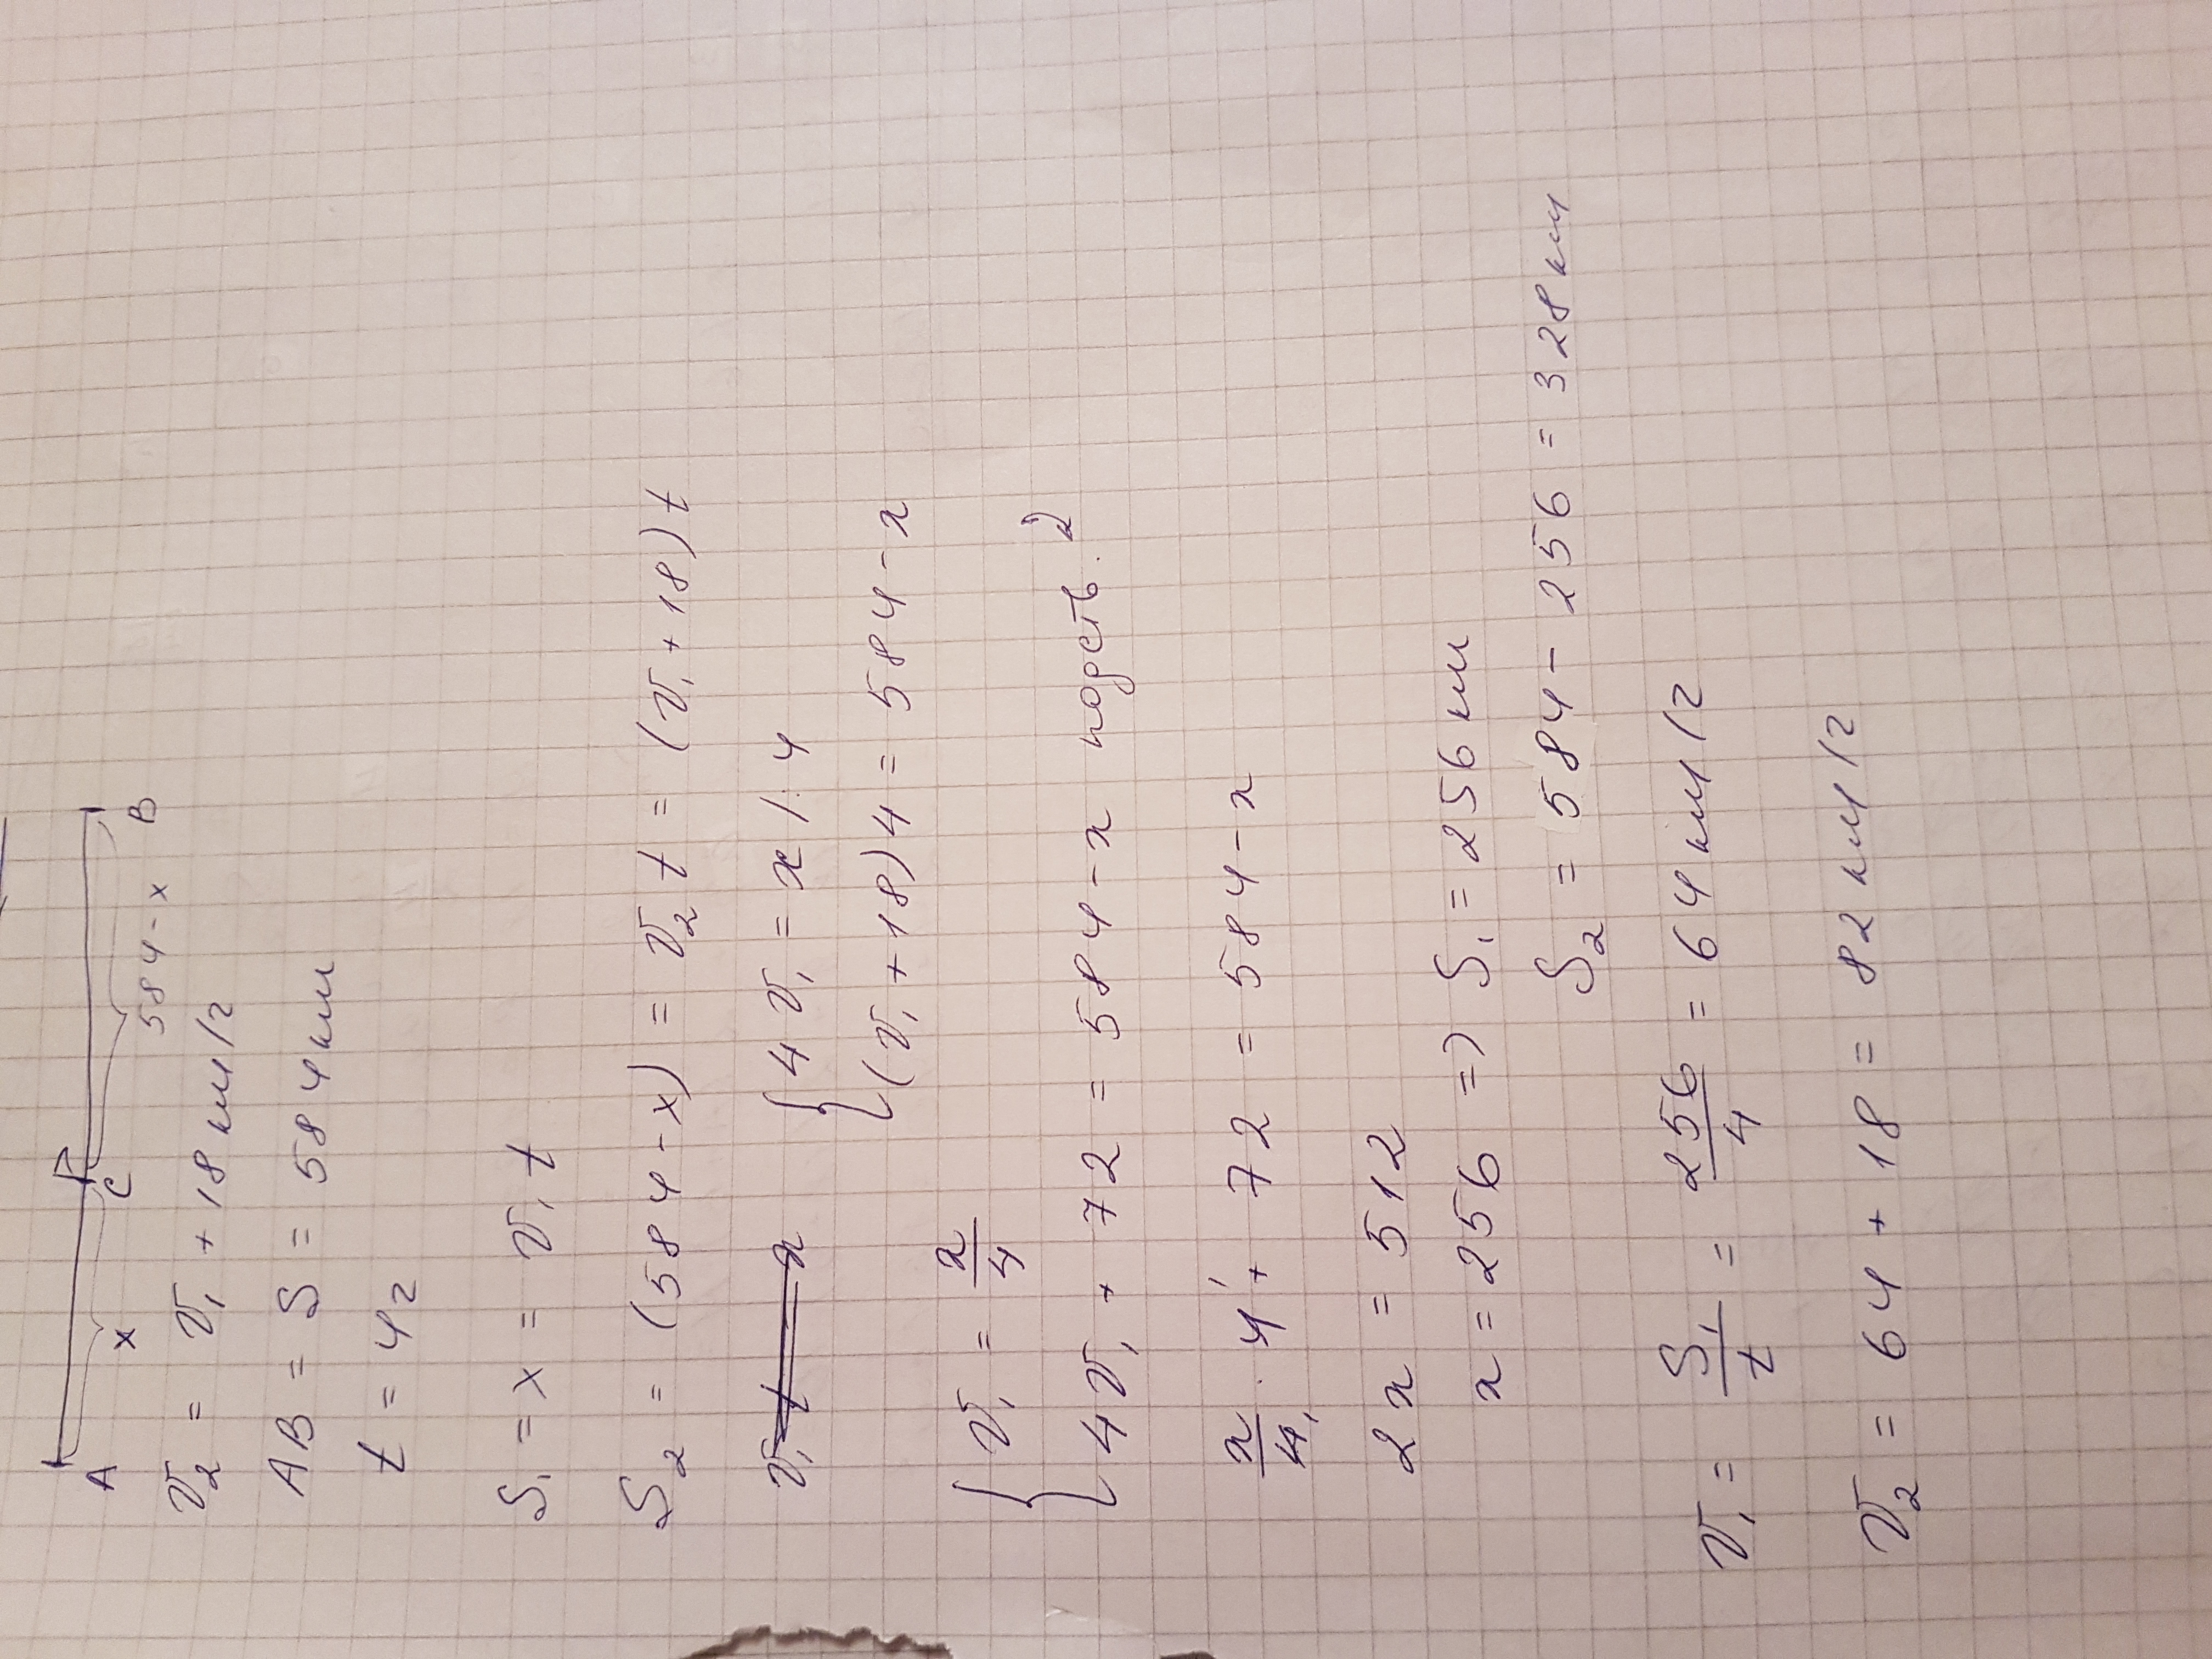 A x C 584-x B
v₂ = v₁ + 18 км/г
AB = S = 584 км
t = 4г
S₁ = x = v₁ t
S₂ = (584-x) = v₂ t = (v₁ + 18) t
v₁ t x { 4 v₁ = x /: 4
(v₁ + 18) 4 = 584 - x
{ v₁ = x/4
4v₁ + 72 = 584 - x подст. 2
x/4 · 4 + 72 = 584 - x
2x = 512
x = 256 => S₁ = 256 км
S₂ = 584 - 256 = 328 км
v₁ = S₁/t = 256/4 = 64 км/г
v₂ = 64 + 18 = 82 км/г